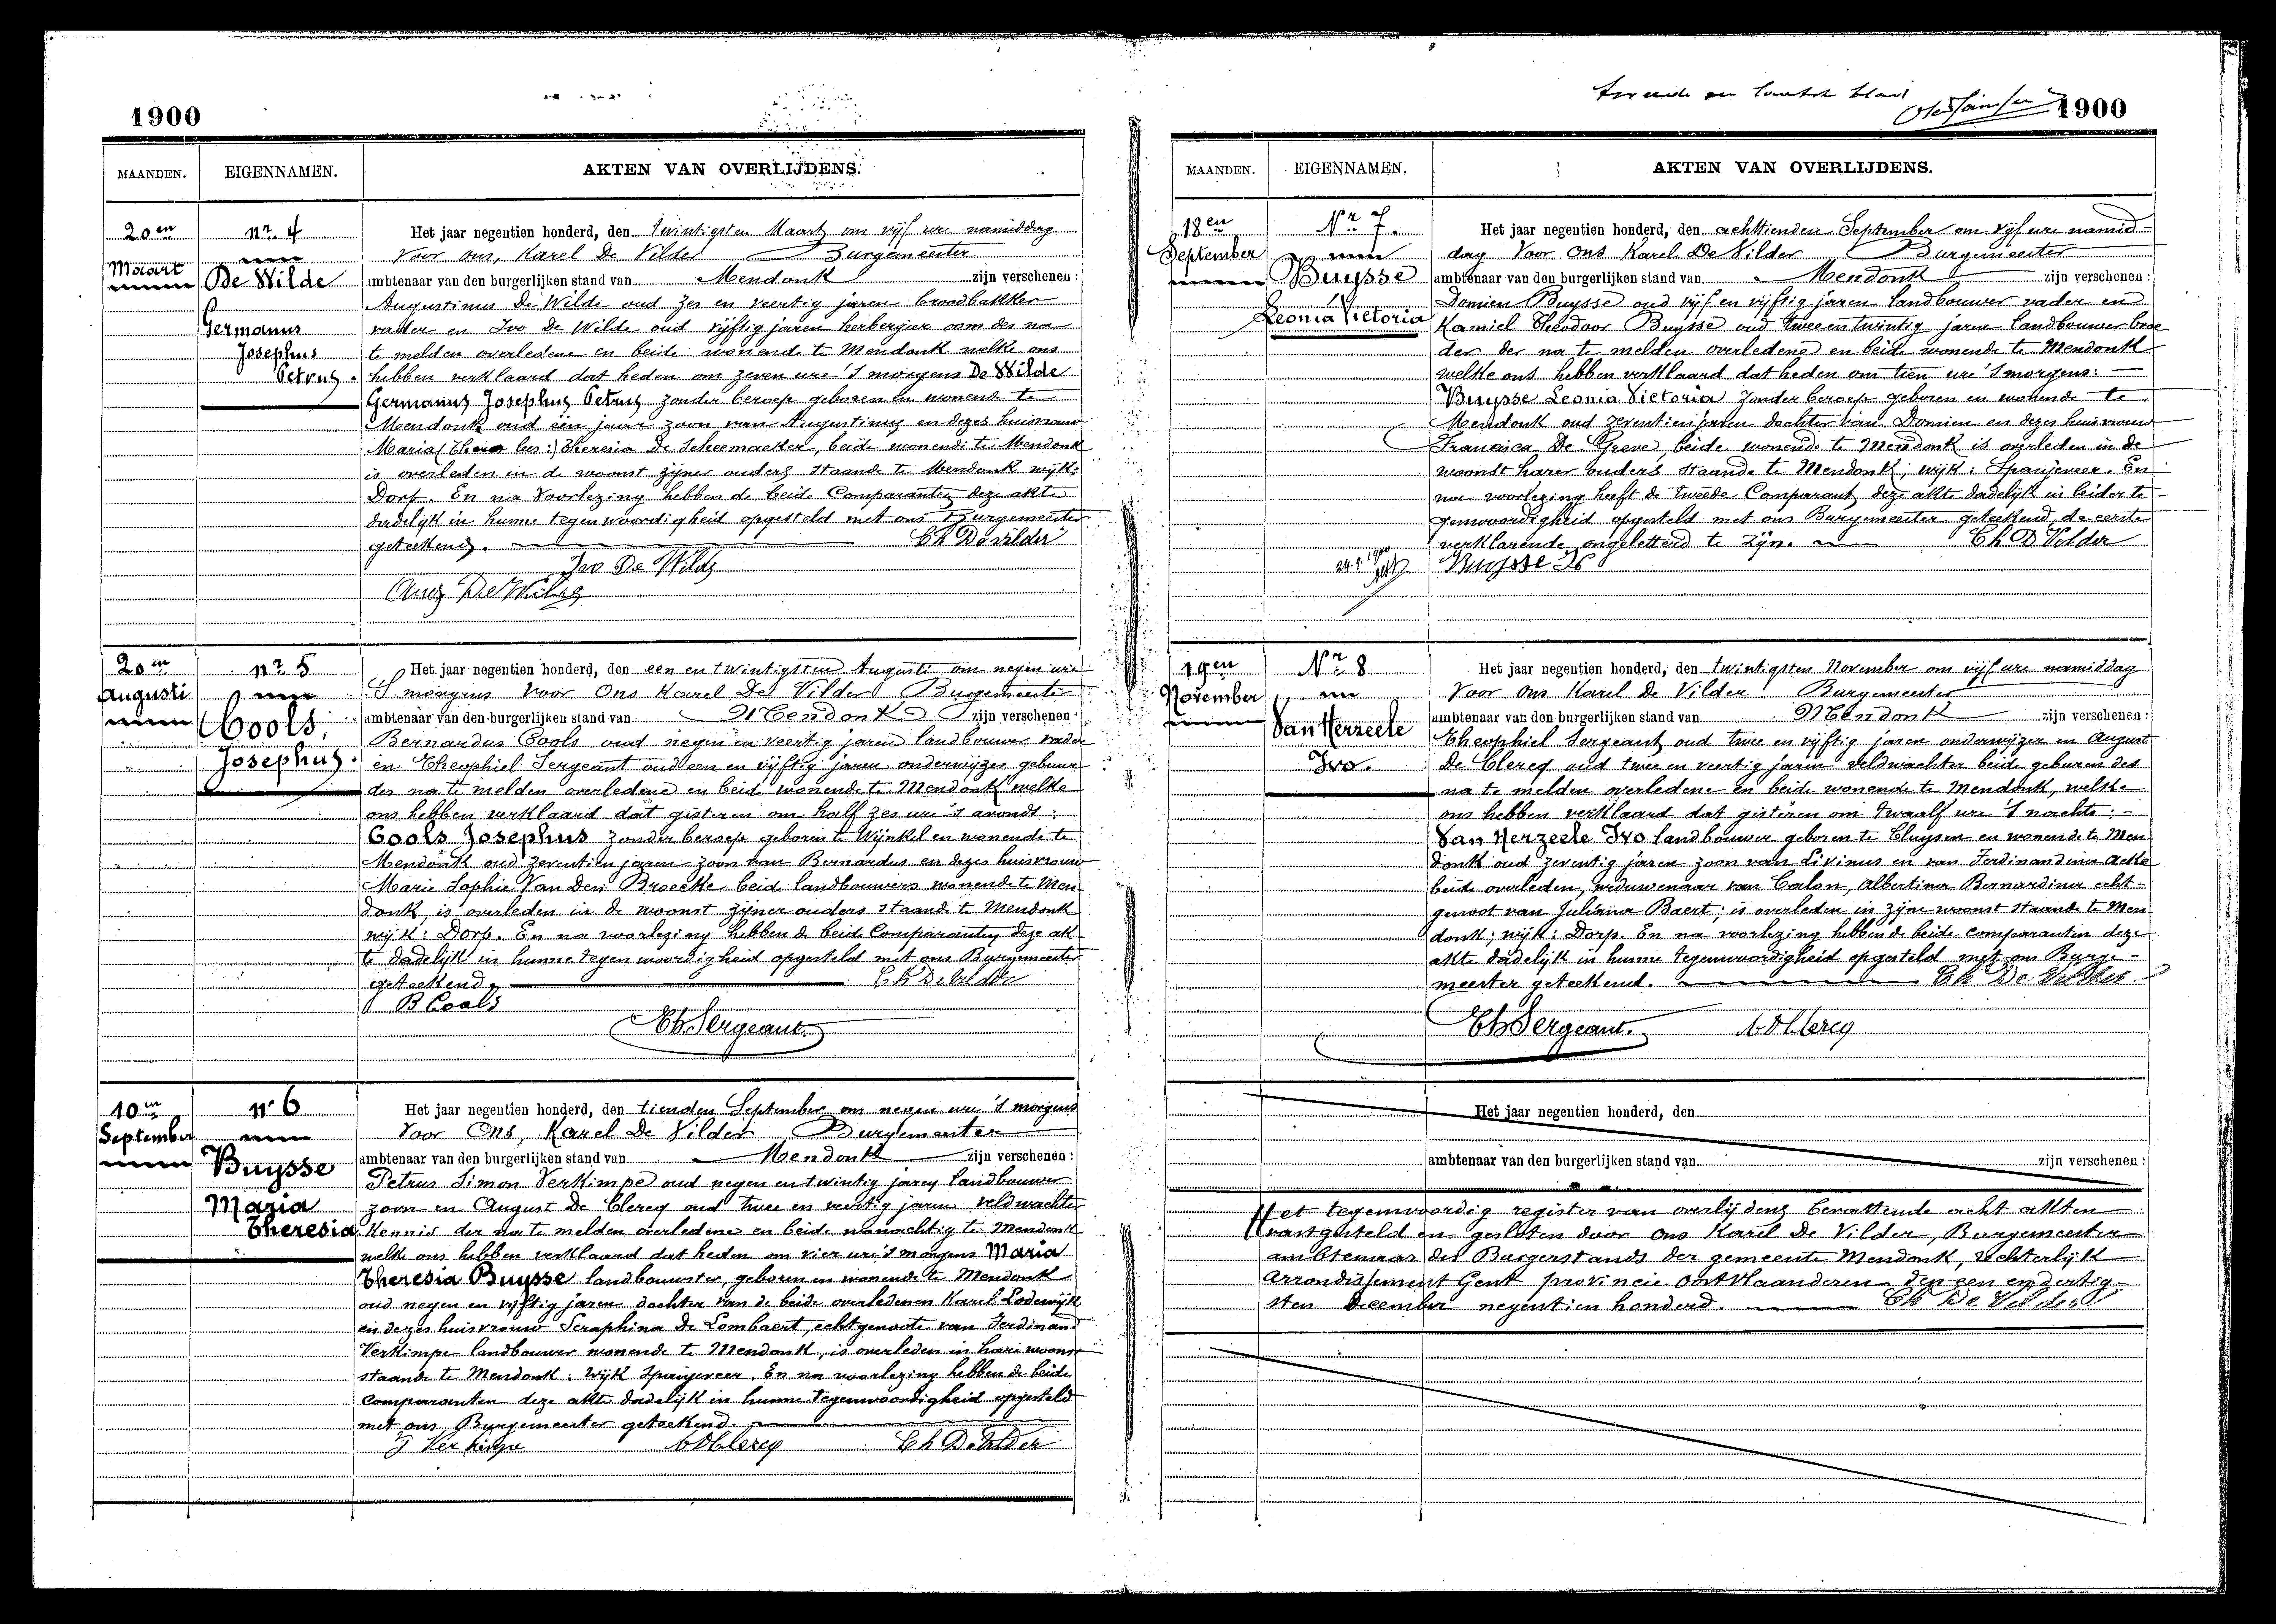 1900
MAANDEN. EIGENNAMEN. AKTEN VAN OVERLIJDENS.
20en
Maart
nr. 4
De Wilde
Germanus
Josephus
Petrus.
Het jaar negentien honderd, den twintigsten Maart om vijf ure namiddag
Voor ons, Karel De Vilder Burgemeester
ambtenaar van den burgerlijken stand van Mendonk zijn verschenen:
Augustinus De Wilde oud zes en veertig jaren broodbakker
vader en Ivo De Wilde oud vijftig jaren herbergier oom des na
te melden overledene en beide wonende te Mendonk welke ons
hebben verklaard dat heden om zeven ure 's morgens De Wilde
Germanus Josephus Petrus zonder beroep geboren en wonende te
Mendonk oud een jaar zoon van Augustinus en dezes huisvrouw
Maria (Theres les:) Theresia De Scheemaeker, beide wonende te Mendonk
is overleden in de woonst zijner ouders staande te Mendonk wijk:
Dorp. En na voorlezing hebben de beide Comparanten deze akte
dadelijk in hunne tegenwoordigheid opgesteld met ons Burgemeester
geteekend. Ch De Vilder
Ivo De Wilde
Aug De Wilde
20en
Augusti
nr. 5
Cools,
Josephus.
Het jaar negentien honderd, den een en twintigsten Augusti om negen ure
'S morgens Voor Ons Karel De Vilder Burgemeester
ambtenaar van den burgerlijken stand van Mendonk zijn verschenen:
Bernardus Cools oud negen en veertig jaren landbouwer vader
en Theophiel Sergeant oud een en vijftig jaren onderwijzer gebuur
des na te melden overledene en beide wonende te Mendonk welke
ons hebben verklaard dat gisteren om half zes ure 's avonds:
Cools Josephus zonder beroep geboren te Wynkel en wonende te
Mendonk oud zeventien jaren zoon van Bernardus en dezes huisvrouw
Marie Sophie Van Den Broecke beide landbouwers wonende te Men
donk, is overleden in de woonst zijner ouders staande te Mendonk
wijk: Dorp. En na voorlezing hebben de beide Comparanten deze ak
te dadelijk in hunne tegenwoordigheid opgesteld met ons Burgemeester
geteekend. Ch De Vilder
B Cools
Th Sergeant.
10en
September
nr 6
Buysse
Maria
Theresia
Het jaar negentien honderd, den tienden September om negen ure 's morgens
Voor Ons, Karel De Vilder Burgemeester
ambtenaar van den burgerlijken stand van Mendonk zijn verschenen:
Petrus Simon Verkimpe oud negen en twintig jaren landbouwer
zoon en August De Clercq oud twee en veertig jaren veldwachter
Kennis der na te melden overledene en beide woonachtig te Mendonk
welke ons hebben verklaard dat heden om vier ure 's morgens Maria
Theresia Buysse landbouwster, geboren en wonende te Mendonk
oud negen en vijftig jaren dochter van de beide overledenen Karel Lodewijk
en dezes huisvrouw Seraphina De Lombaert, echtgenoote van Ferdinand
Verkimpe landbouwer wonende te Mendonk, is overleden in hare woonst
staande te Mendonk: Wijk Spanjeveer. En na voorlezing hebben de beide
Comparanten deze akte dadelijk in hunne tegenwoordigheid opgesteld
met ons Burgemeester geteekend.
Verkimpe A DClercq Ch De Vilder
tweede en laatste blad
1900
MAANDEN. EIGENNAMEN. AKTEN VAN OVERLIJDENS.
18en
September
Nr 7.
Buysse
Leonia Victoria
Het jaar negentien honderd, den achttienden September om vijf ure namid-
dag Voor Ons Karel De Vilder Burgemeester
ambtenaar van den burgerlijken stand van Mendonk zijn verschenen:
Domien Buysse oud vijf en vijftig jaren landbouwer vader en
Kamiel Theodoor Buysse oud twee en twintig jaren landbouwer broe
der der na te melden overledene en beide wonende te Mendonk
welke ons hebben verklaard dat heden om tien ure 's morgens:
Buysse Leonia Victoria zonder beroep geboren en wonende te
Mendonk oud zeventien jaren dochter van Domien en dezes huisvrouw
Francisca De Greve, beide wonende te Mendonk is overleden in de
woonst harer ouders staande te Mendonk, wijk: Spanjeveer. En
na voorlezing heeft de tweede Comparant deze akte dadelijk in beider te-
genwoordigheid opgesteld met ons Burgemeester geteekend, de eerste
verklarende ongeletterd te zijn. Ch De Vilder
Buysse K
19en
November
Nr 8
Van Herzeele
Ivo.
Het jaar negentien honderd, den twintigsten November om vijf ure namiddag
Voor Ons Karel De Vilder Burgemeester
ambtenaar van den burgerlijken stand van Mendonk zijn verschenen:
Theophiel Sergeant oud twee en vijftig jaren onderwijzer en August
De Clercq oud twee en veertig jaren veldwachter beide geburen des
na te melden overledene en beide wonende te Mendonk, welke
ons hebben verklaard dat gisteren om twaalf ure 's nachts:
Van Herzeele Ivo landbouwer geboren te Cluysen en wonende te Men
donk oud zeventig jaren zoon van Livinus en van Ferdinandina Acke
beide overleden, weduwenaar van Calon, Albertina Bernardina echt-
genoot van Juliana Baert, is overleden in zijne woonst staande te Men
donk; wijk: Dorp. En na voorlezing hebben de beide comparanten deze
akte dadelijk in hunne tegenwoordigheid opgesteld met ons Burge-
meester geteekend. Ch De Vilder
Th Sergeant. A DClercq
Het jaar negentien honderd, den
ambtenaar van den burgerlijken stand van zijn verschenen:
Het tegenwoordig register van overlijdens bevattende acht akten
vastgesteld en gesloten door ons Karel De Vilder, Burgemeester
ambtenaar des Burgerstands der gemeente Mendonk, rechterlijk
Arrondissement Gent provincie Oost Vlaanderen den een en dertig-
sten December negentien honderd. Ch De Vilder